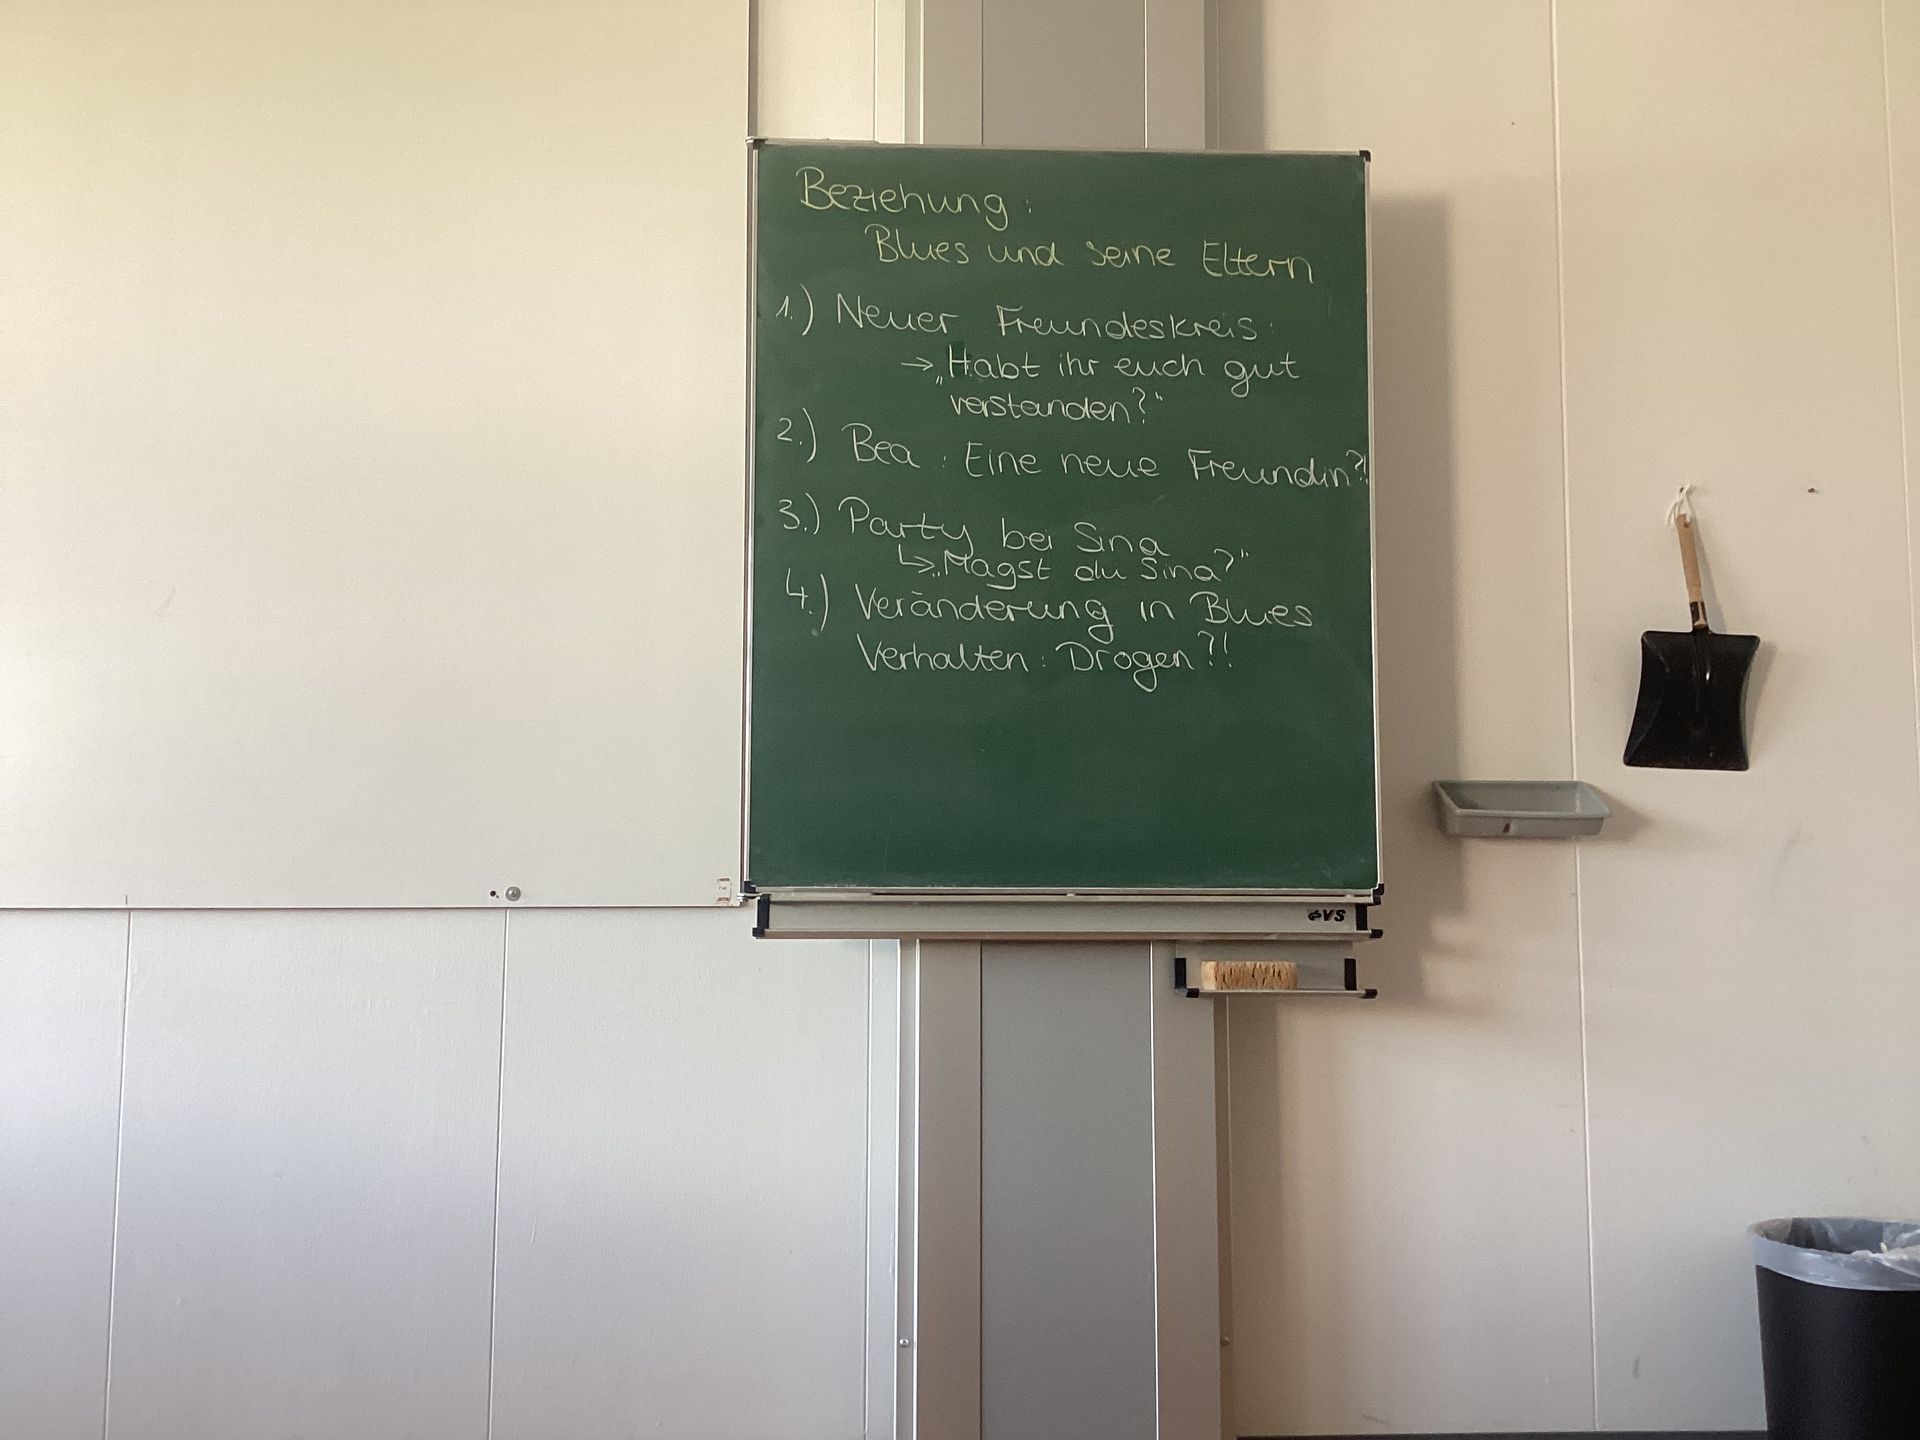 Beziehung:
Blues und seine Eltern
1.) Neuer Freundeskreis:
→ „Habt ihr euch gut
verstanden?“
2.) Bea : Eine neue Freundin?!
3.) Party bei Sina
↳ „Magst du Sina?“
4.) Veränderung in Blues
Verhalten : Drogen?!
VS